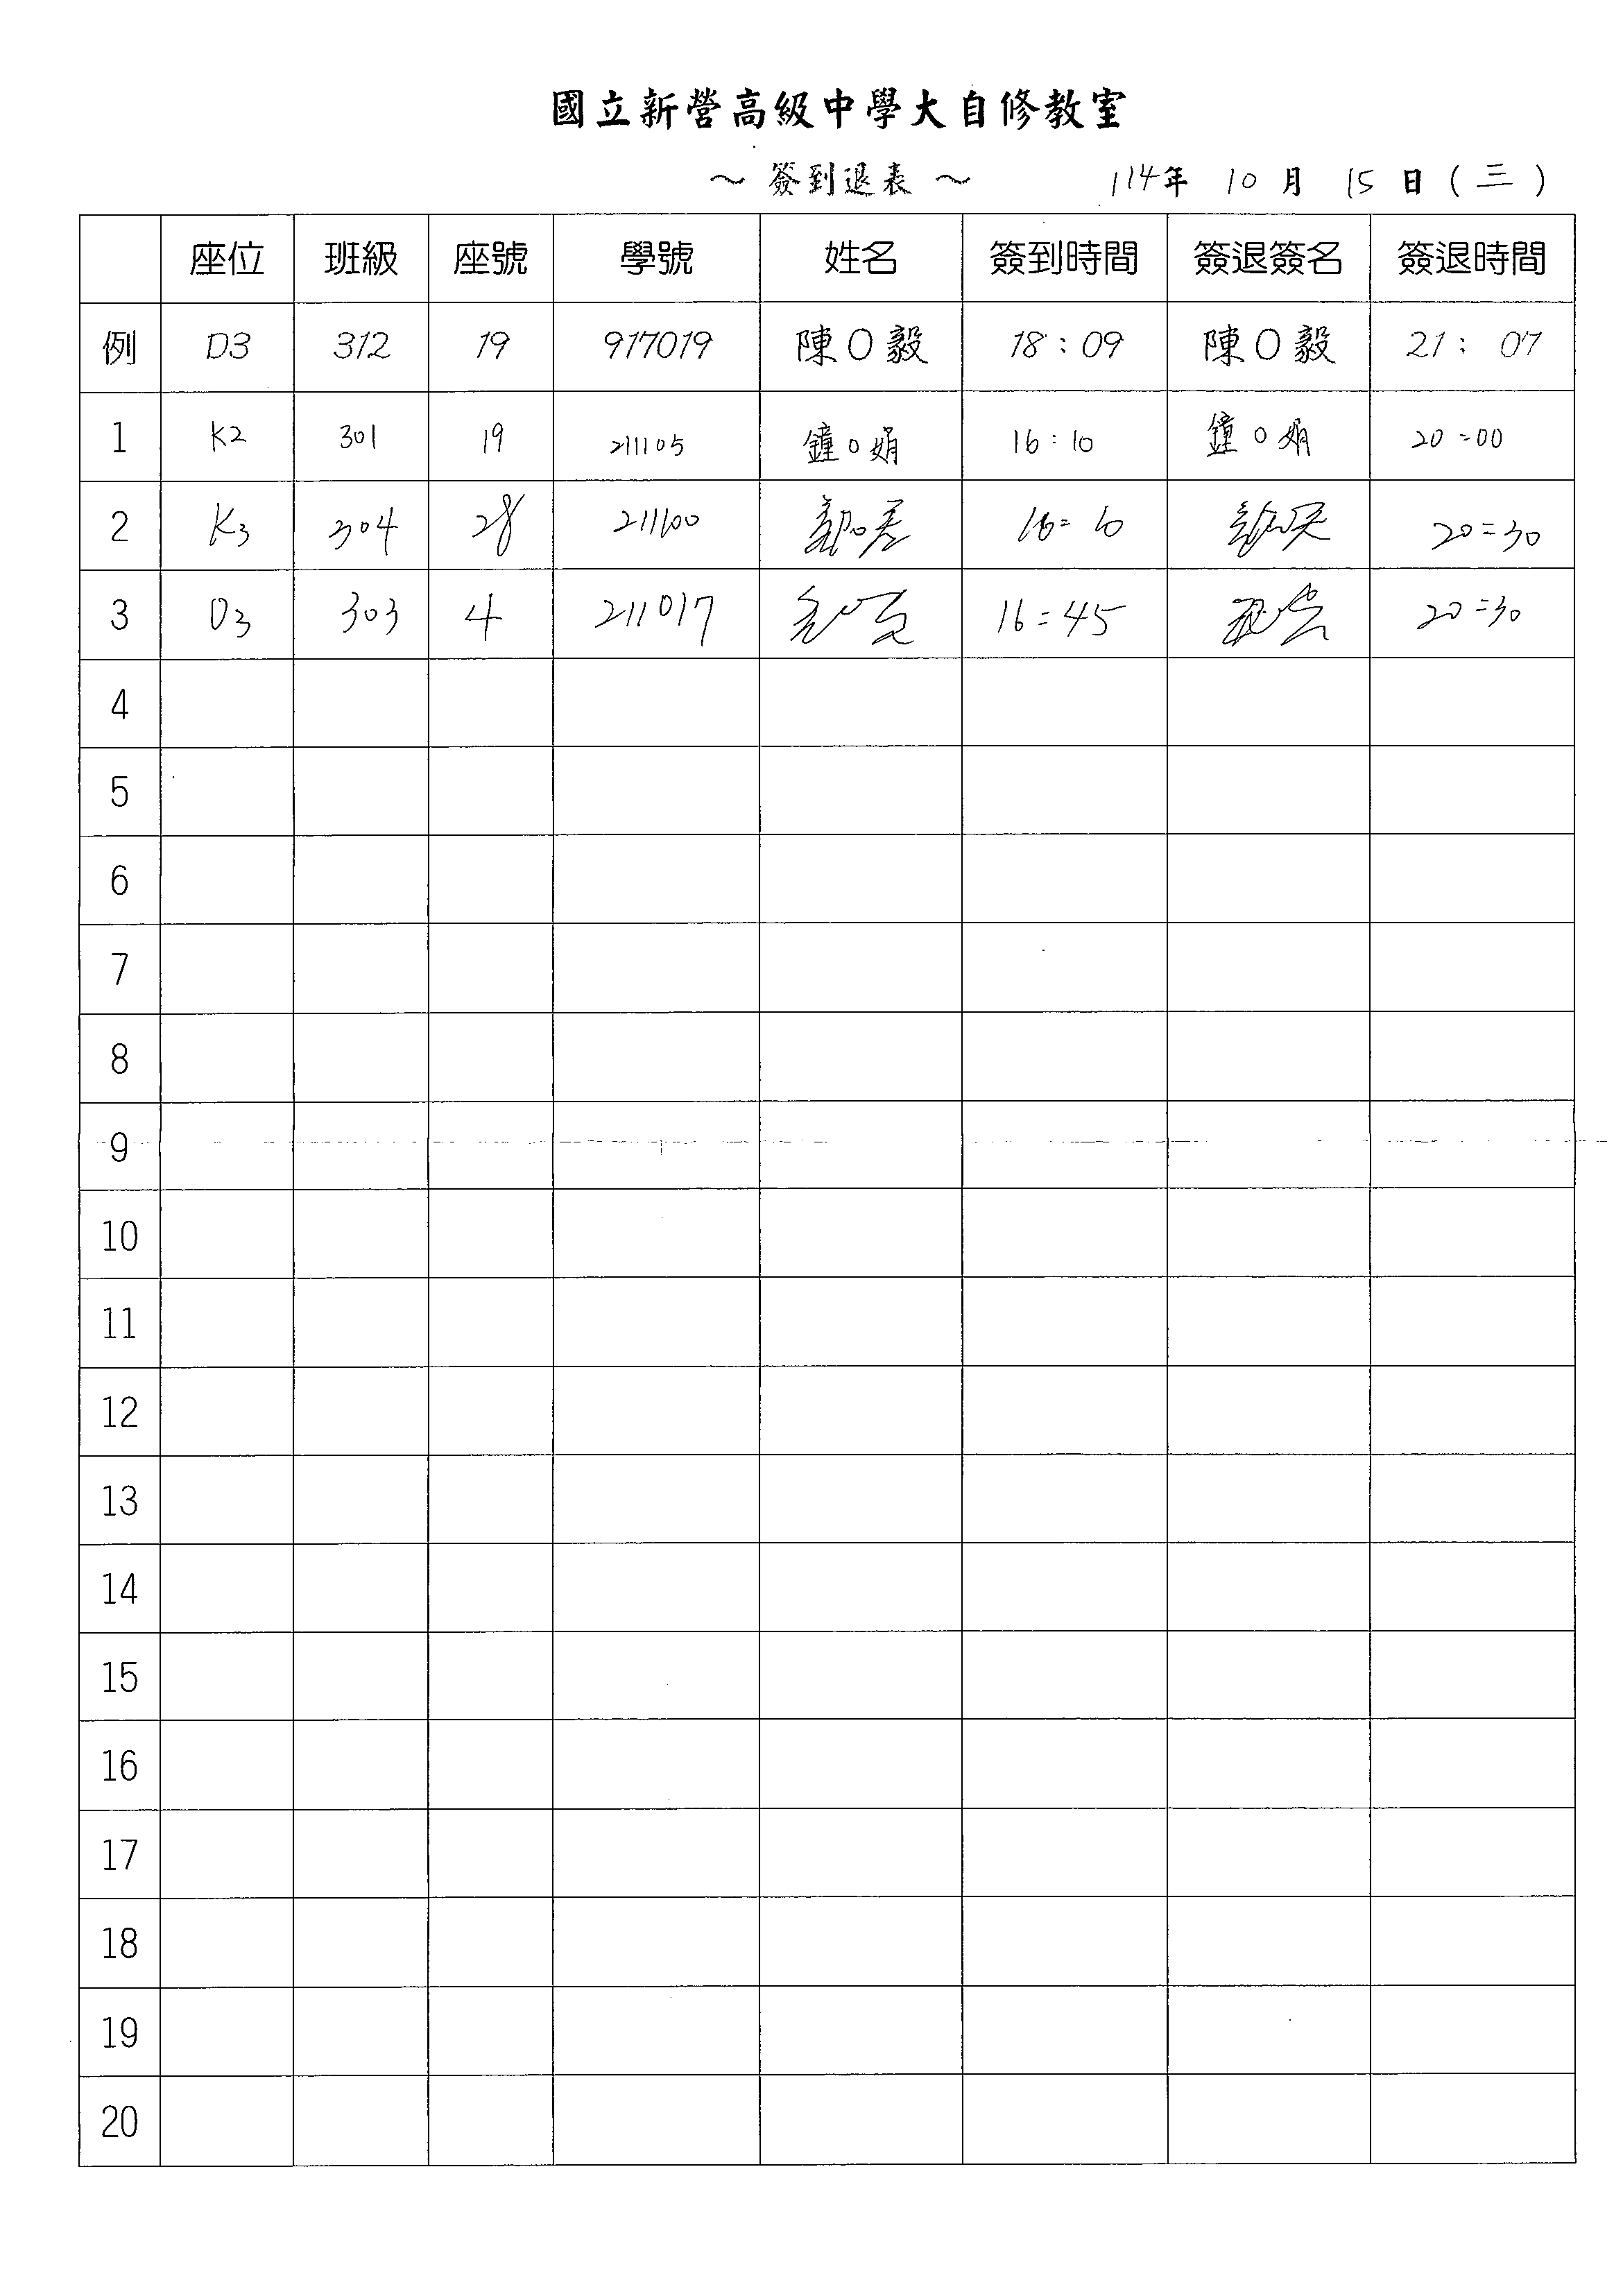 國立新營高級中學大自修教室
～ 簽到退表 ～ 114年 10月 15日(三)
座位 班級 座號 學號 姓名 簽到時間 簽退簽名 簽退時間
例 D3 312 19 917019 陳O毅 18:09 陳O毅 21:07
1 K2 301 19 211105 鐘O娟 16:10 鐘O娟 20:00
2 K3 304 28 211100 16:10 20:30
3 D3 303 4 211017 16:45 20:30
4
5
6
7
8
9
10
11
12
13
14
15
16
17
18
19
20